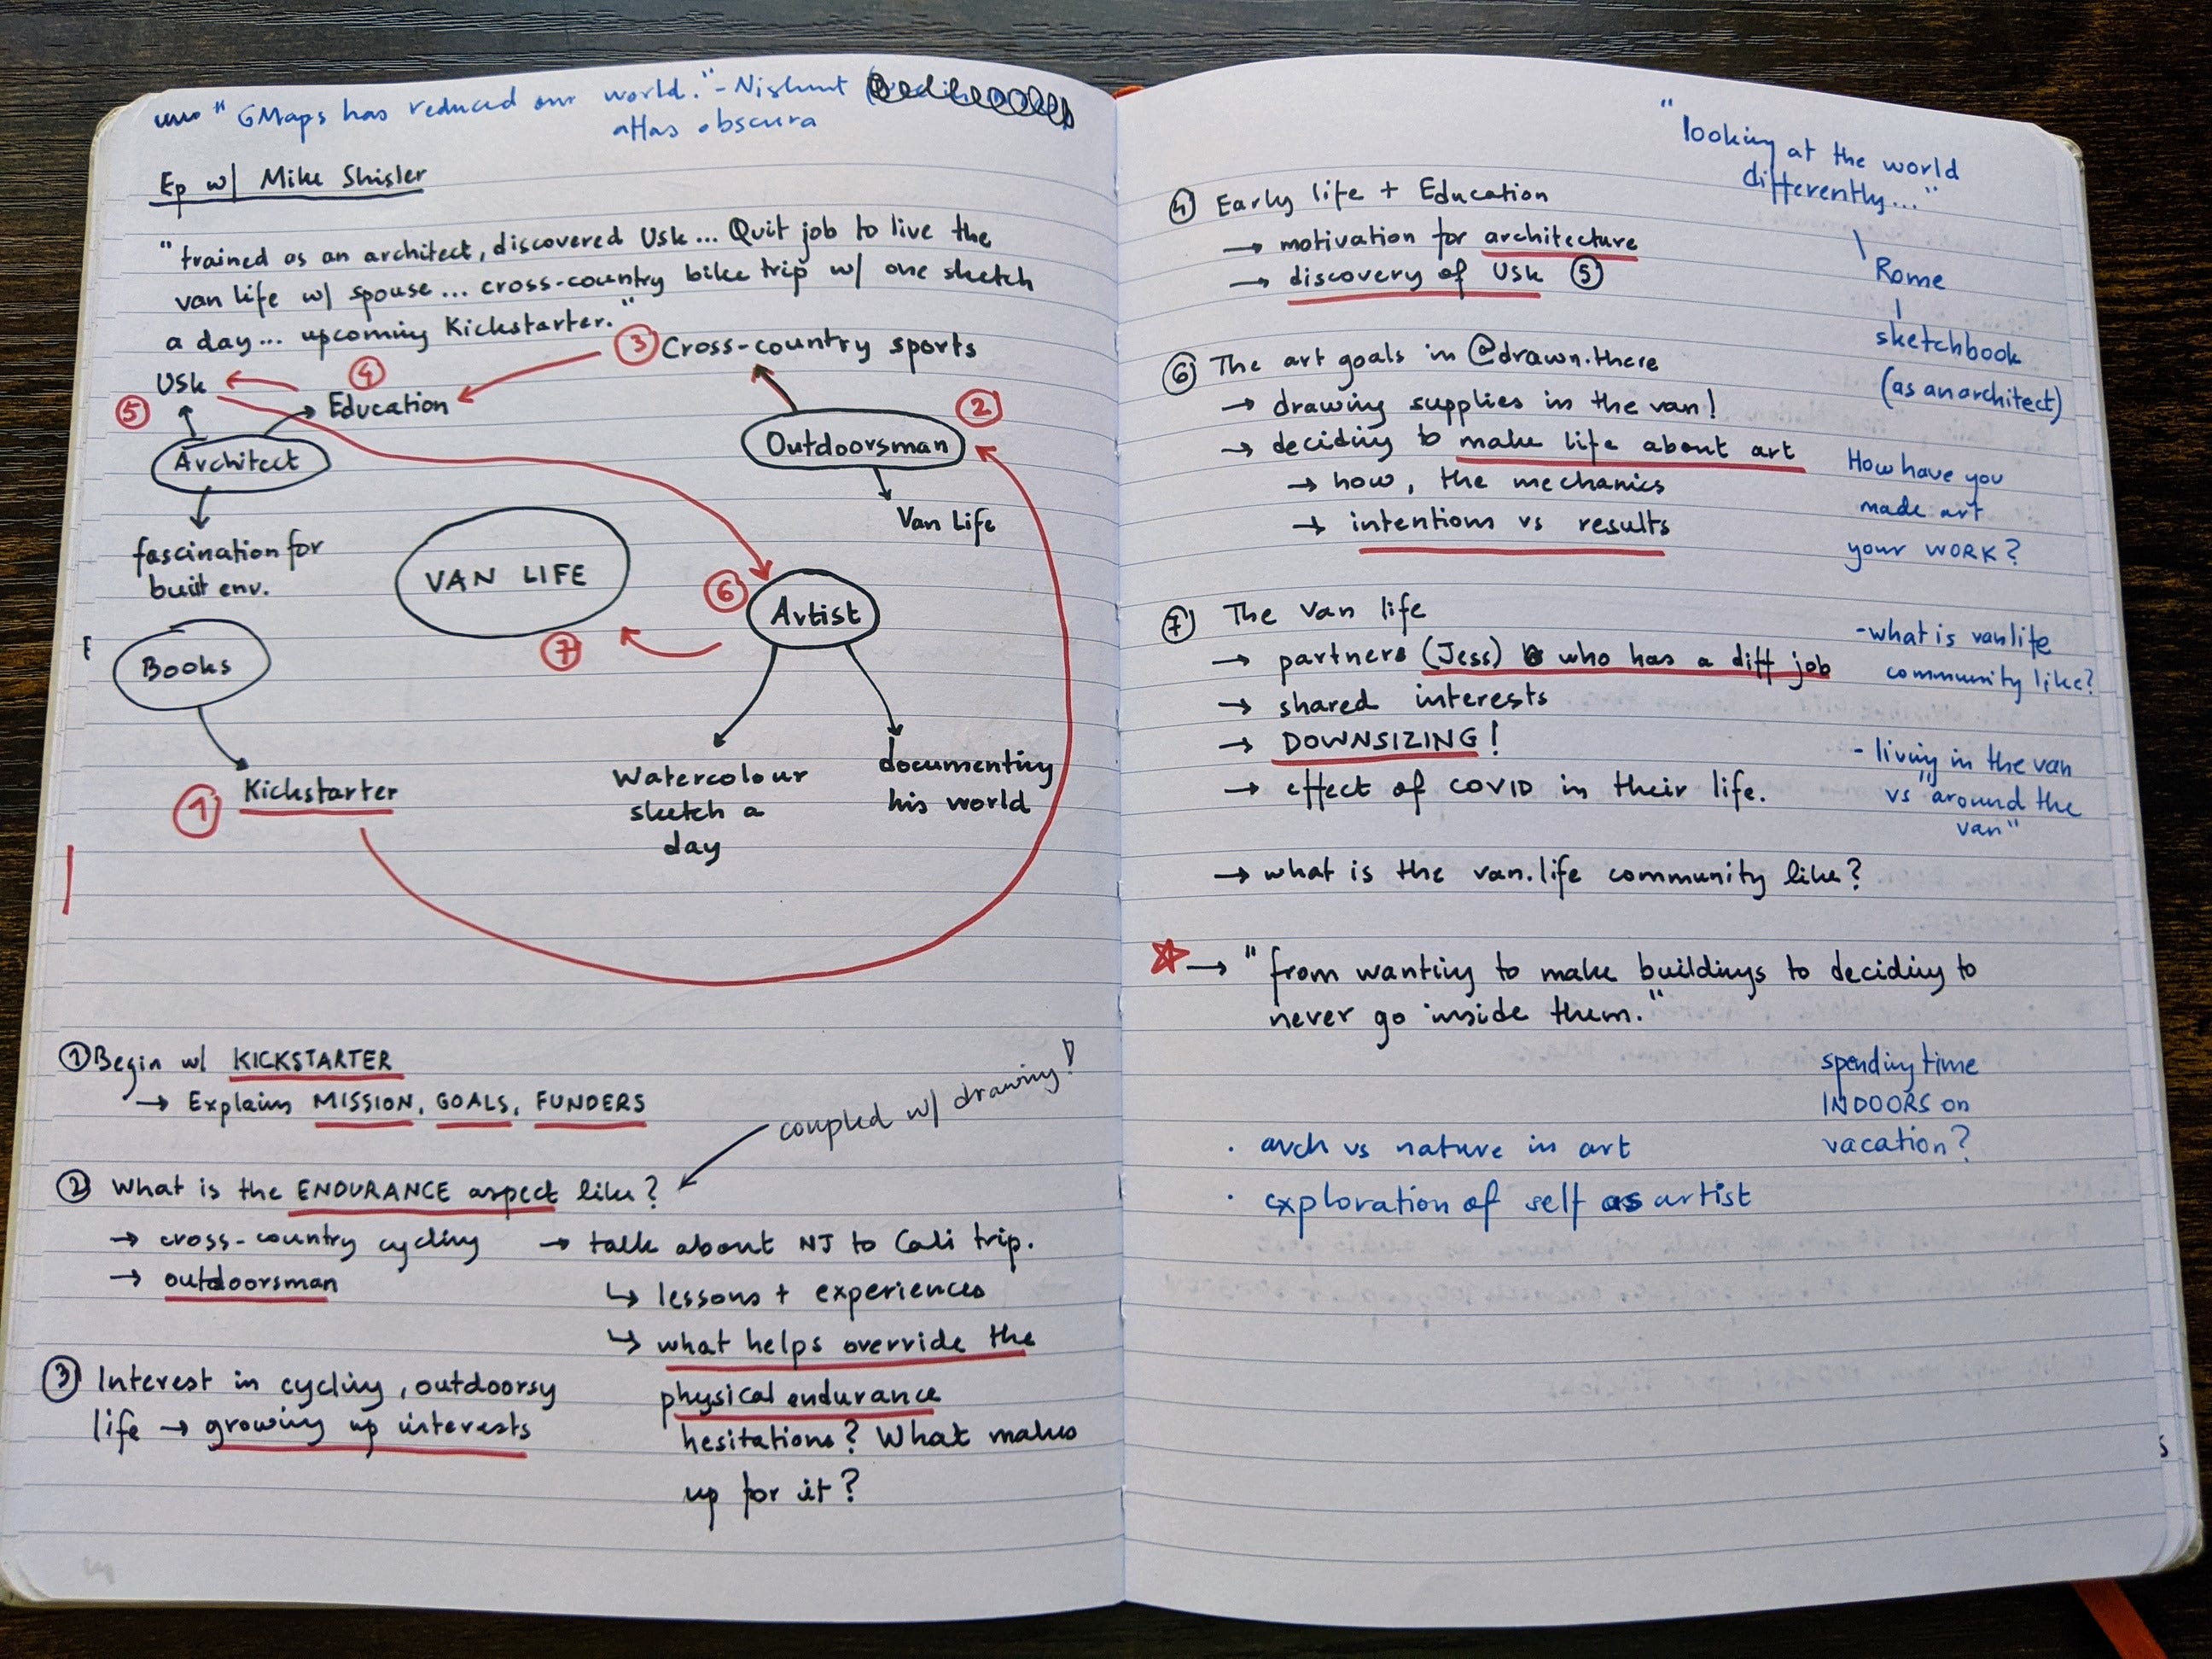 "GMaps has reduced our world." - Nishant
atlas obscura
Ep w/ Mike Shisler
"trained as an architect, discovered Usk... Quit job to live the
van life w/ spouse... cross-country bike trip w/ one sketch
a day... upcoming Kickstarter."
③ Cross-country sports
④
Usk
⑤
Education
②
Outdoorsman
Architect
Van Life
fascination for
built env.
VAN LIFE
⑥
Artist
⑦
Books
Kickstarter
①
Watercolour
sketch a
day
documenting
his world
① Begin w/ KICKSTARTER
→ Explain MISSION, GOALS, FUNDERS
coupled w/ drawing!
② What is the ENDURANCE aspect like?
→ cross-country cycling
→ outdoorsman
→ talk about NJ to Cali trip.
↳ lessons + experiences
↳ what helps override the
physical endurance
hesitations? What makes
up for it?
③ Interest in cycling, outdoorsy
life → growing up interests
"looking at the world
differently..."
Rome
sketchbook
(as an architect)
④ Early life + Education
→ motivation for architecture
→ discovery of Usk ⑤
⑥ The art goals in @drawn.there
→ drawing supplies in the van!
→ deciding to make life about art
→ how, the mechanics
→ intentions vs results
How have you
made art
your WORK?
⑦ The van life
→ partners (Jess) who has a diff job
→ shared interests
→ DOWNSIZING!
→ effect of COVID in their life.
- what is vanlife
community like?
- living in the van
vs "around the
van"
→ what is the van.life community like?
→ "from wanting to make buildings to deciding to
never go inside them."
spending time
INDOORS on
vacation?
· arch vs nature in art
· exploration of self as artist